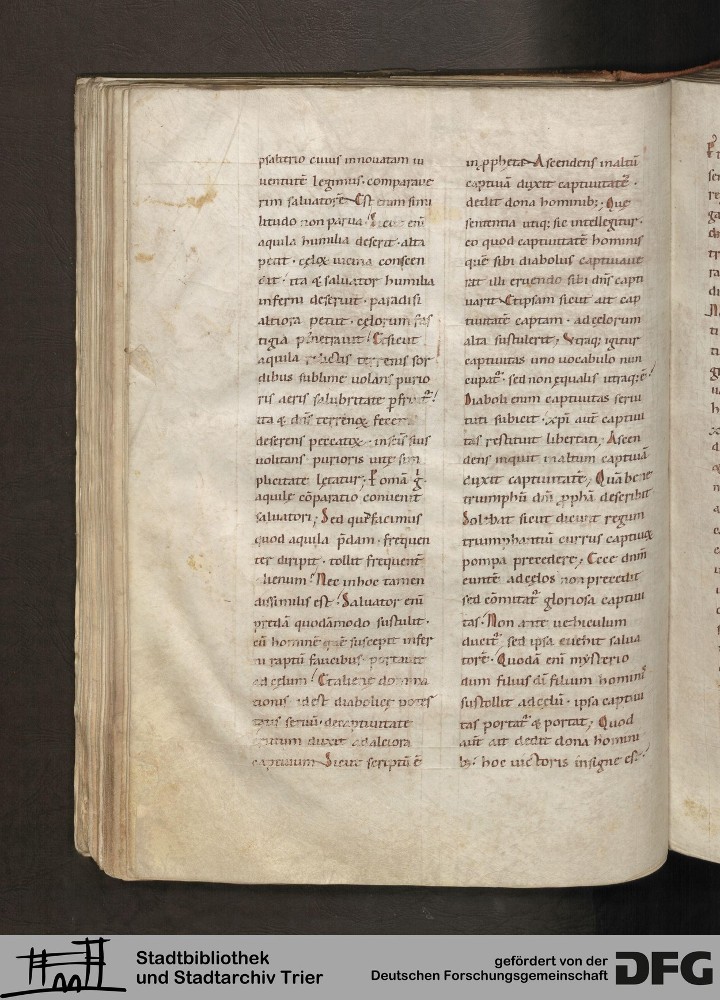 psalterio cuius innouatam iu
uentutē legimus · comparaue
rim saluatorē Est enim simi
litudo non parua · enī
aquila humilia deserit · alta
petit · cęlox uicina conscen
dit / ita & saluator humilia
inferni deseruit · paradisi
altiora petiit · cęlorum fas
tigia penetrauit / Et sicut
aquila terrenis sor
dibus sublime uolans purio
ris aeris salubritate
ita & dn̄s terrenoꝝ
deserens peccatix · in sc̄is suis
uolitans purioris uitę sim
plicitate lętatur ; Ergo
aquilę cōparatio conuenit
saluatori ; Sed quid facimus
quod aquila p̄dam · frequen
ter diripit · tollit frequent̄
alienum / Nec in hoc tamen
dissimilis est · Saluator enī
predā quodāmodo sustulit ·
cū hominē quē suscepit infer
ni raptū faucibus · portauit
ad cęlum / Et alienę domina
tionis · idest diabolicę potes
tatis seruū · decaptiuitate
duxit ad altiora
captiuum Sicut scriptū ē
in ꝓpheta Ascendens in altū
captiuā duxit captiuitatē ·
dedit dona hominib; · Quę
sententia utiq; sic intellegitur ·
eo quod captiuitatē hominis
quē sibi diabolus captiuaue
rat illi eruendo sibi dn̄s capti
uarit Et ipsam sicut ait cap
tiuitatē captam · ad cęlorum
alta sustulerit ; Vtraq; igitur
captiuitas uno uocabulo nun
cupat · sed non ęqualis utraq; ē /
Diaboli enim captiuitas serui
tuti subicit · xp̄i aut̄ captiui
tas restituit libertati ; Ascen
dens inquit in altum captiuā
duxit captiuitatē ; Quā bene
triumphū dn̄i ꝓphā describit
Solebat sicut dicunt regum
triumphantiū currus captiuoꝝ
pompa precedere ; Ecce dnm̄
euntē ad cęlos non precedit
sed cōmitat gloriosa captiui
tas · Non ante uehiculum
ducit · sed ipsa euehit salua
torē · Quodā enī mysterio
dum filius dī filium hominis
sustollit ad cęlū · ipsa captiui
tas portat & portat ; Quod
aut̄ ait dedit dona homini
b; · hoc uictoris insigne est /
Stadtbibliothek
und Stadtarchiv Trier
gefördert von der
Deutschen Forschungsgemeinschaft
DFG